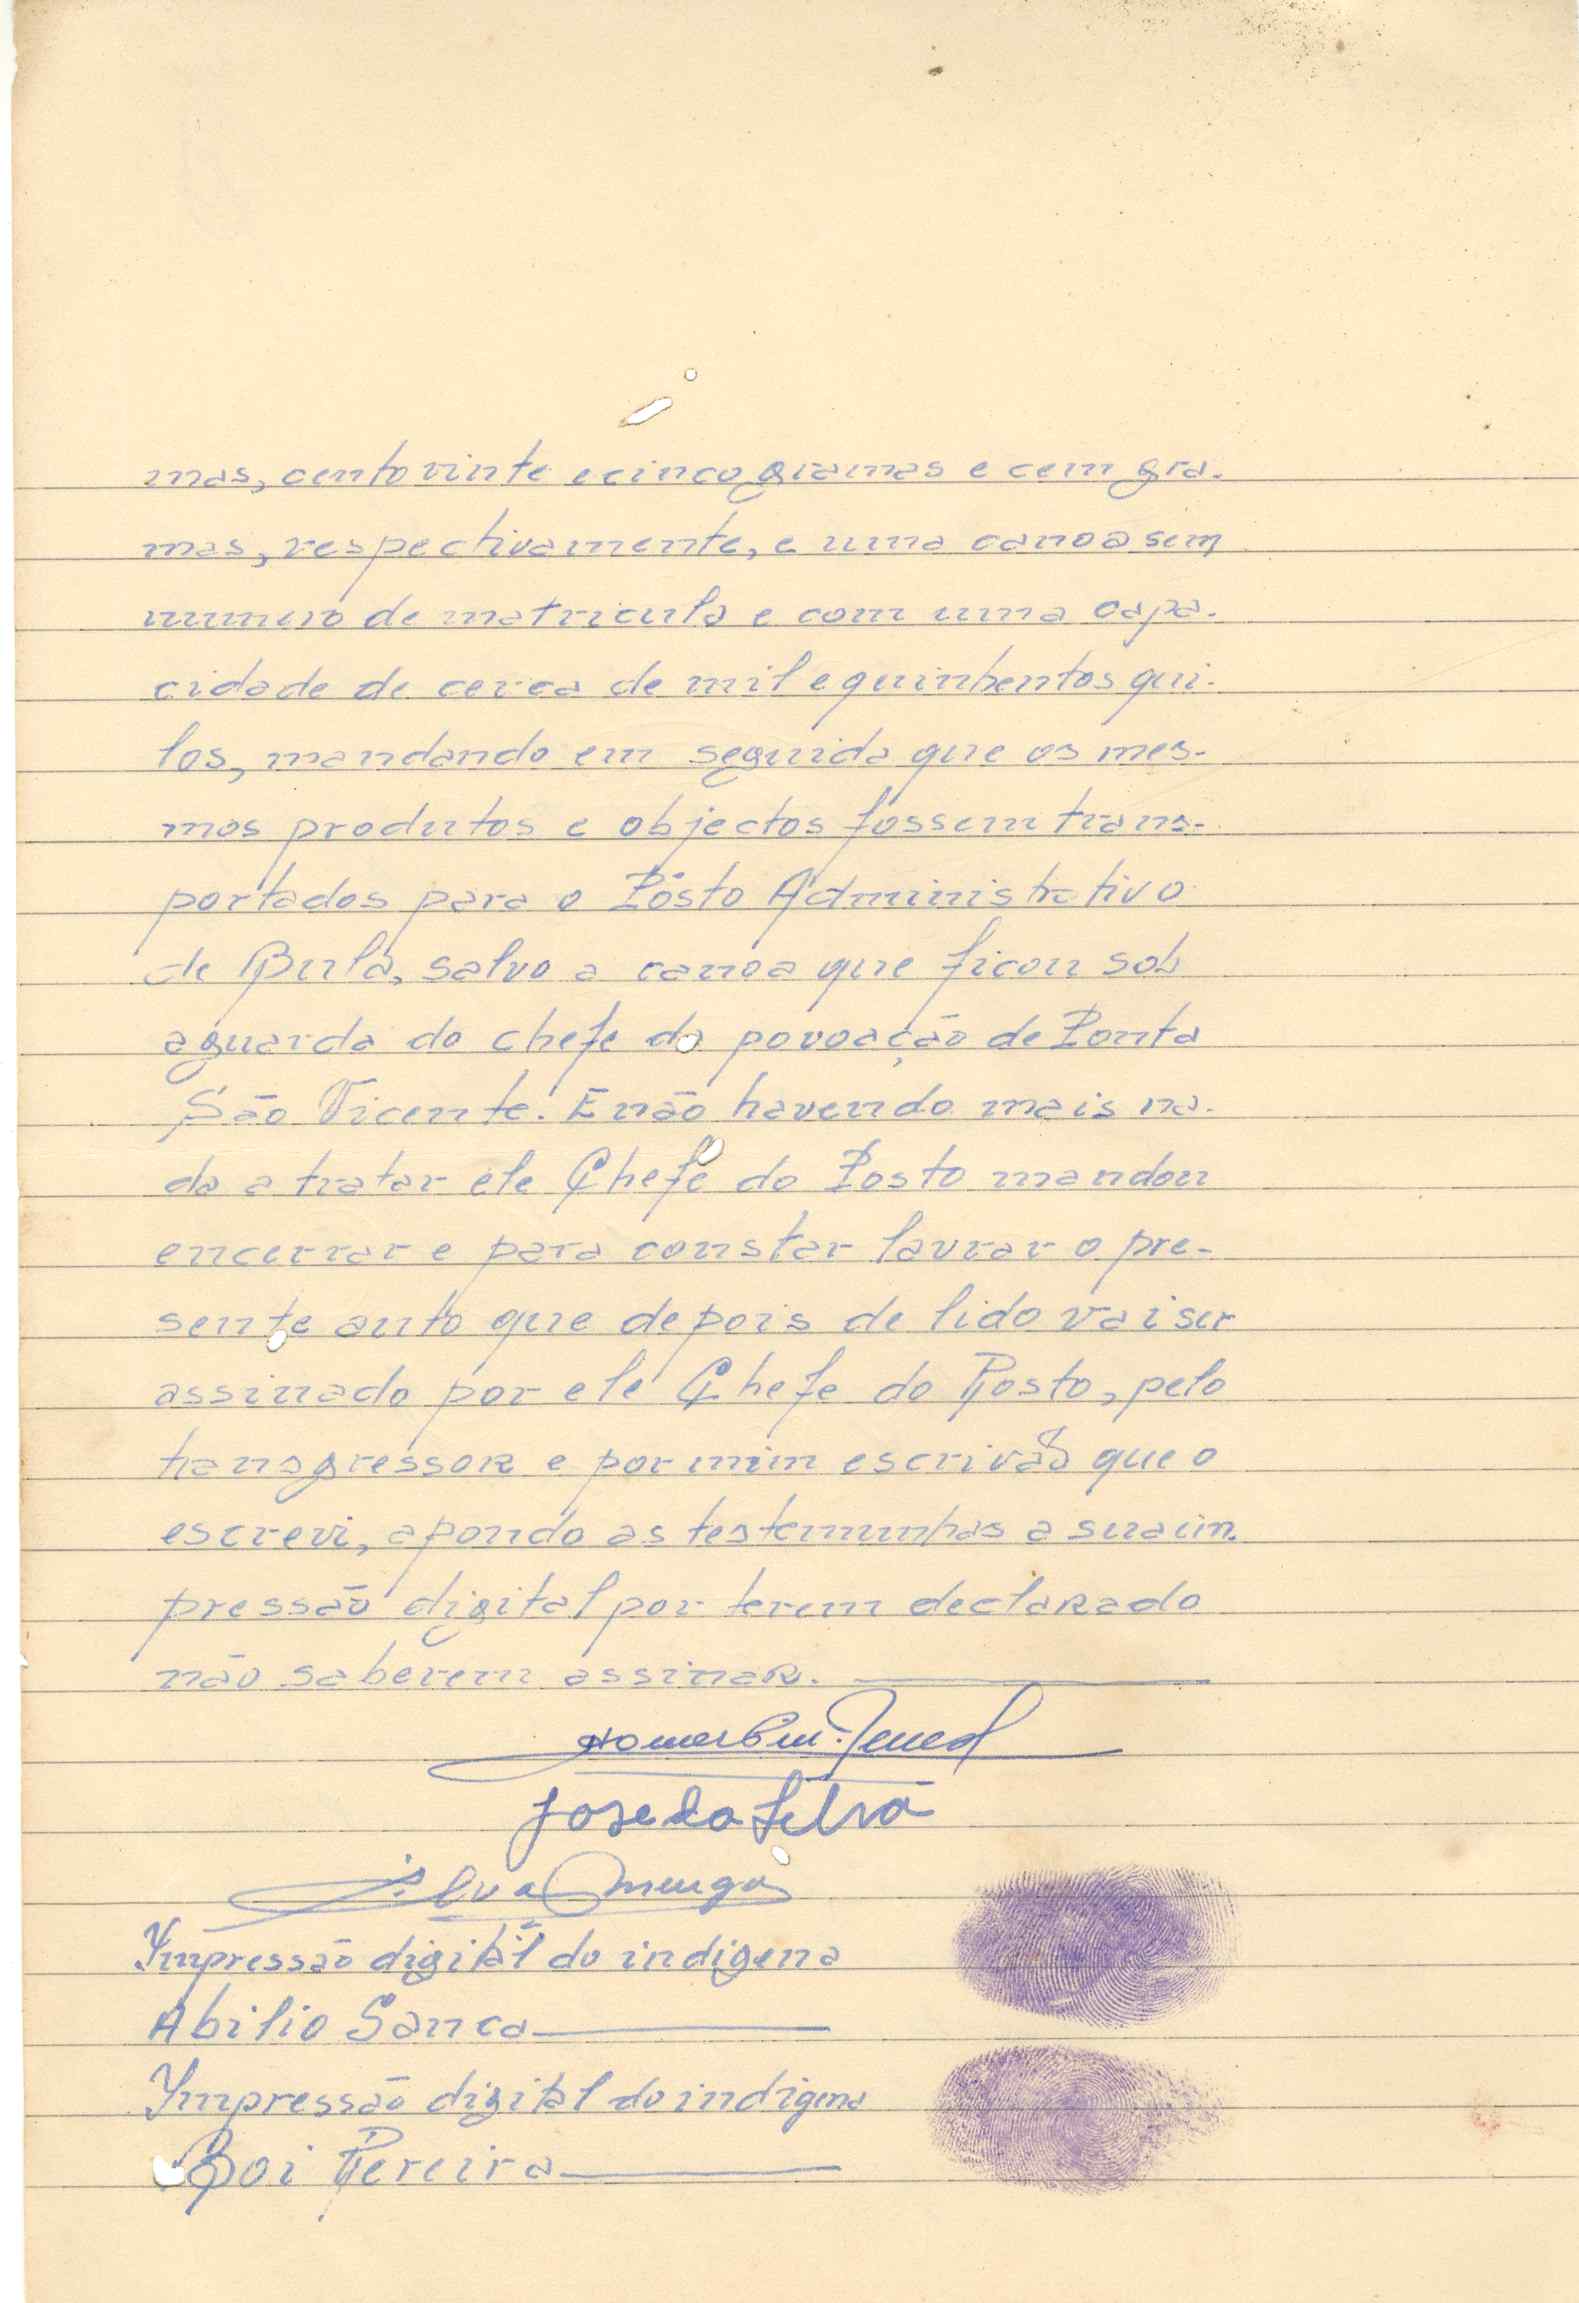 mas, cento vinte e cinco gramas e cem gra-
mas, respectivamente, e uma canoa sem
numero de matricula e com uma capa-
cidade de cerca de mil e quinhentos qui-
los, mandando em seguida que os mes-
mos produtos e objectos fossem trans-
portados para o Pôsto Administrativo
de Bula, salvo a canoa que ficou sob
a guarda do chefe da povoação de Ponta
São Vicente. E não havendo mais na-
da a tratar ele Chefe do Posto mandou
encerrar e para constar lavrar o pre-
sente auto que depois de lido vai ser
assinado por ele Chefe do Posto, pelo
transgressor e por mim escrivão que o
escrevi, apondo as testemunhas a sua im-
pressão digital por terem declarado
não saberem assinar.
José da Silva
Impressão digital do indigena
Abilio Sanca
Impressão digital do indigena
Boi Pereira